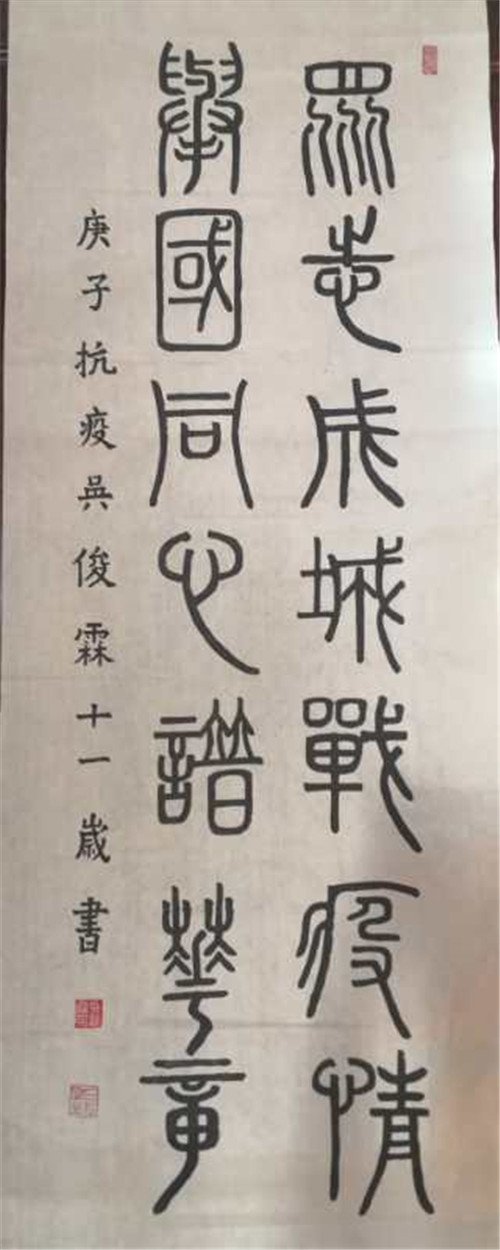 眾志成城戰疫情
舉國同心譜華章
庚子抗疫吳俊霖十一歲書